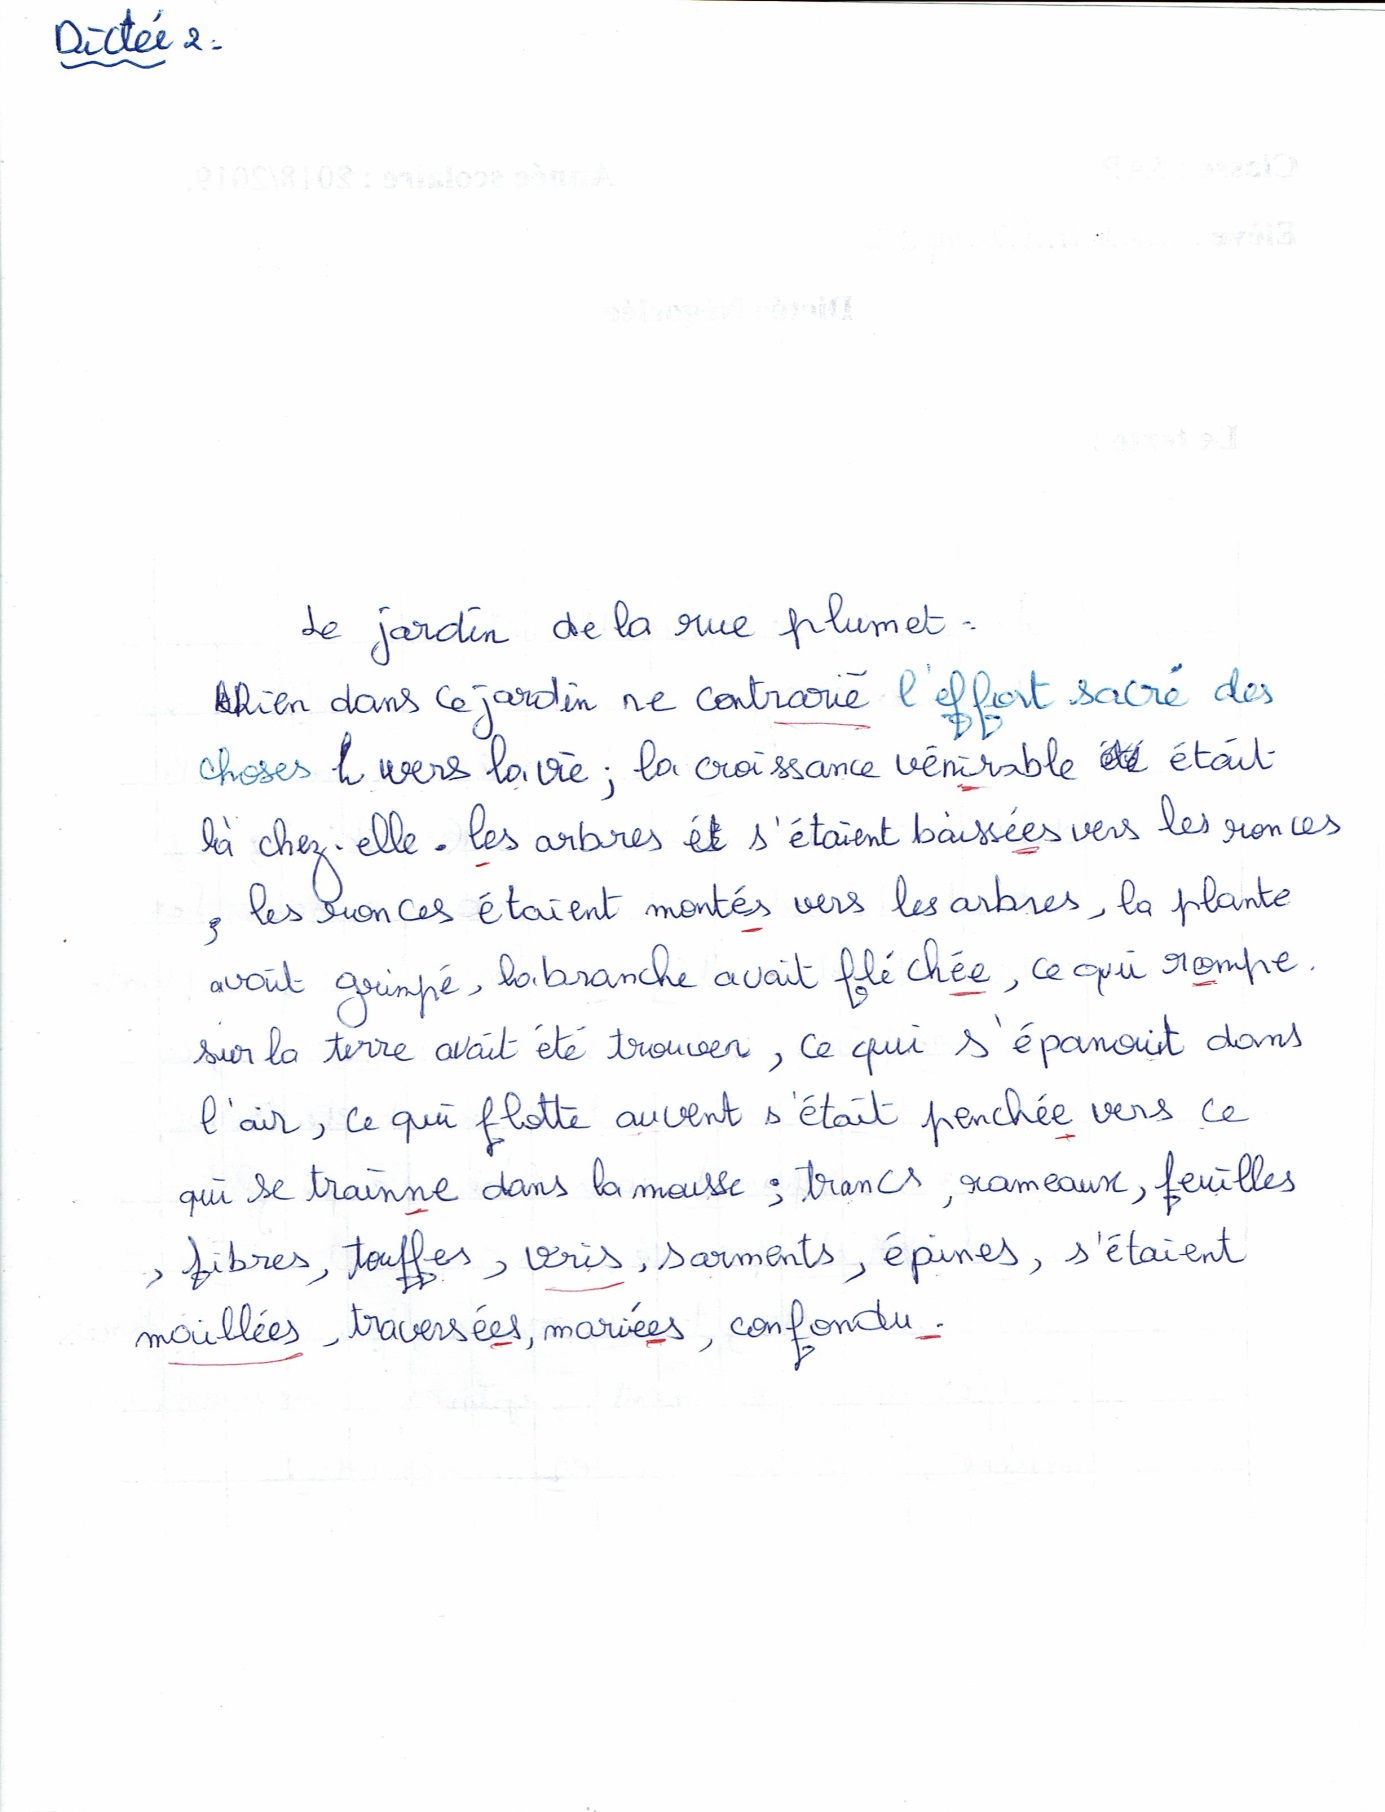 Dictée 2:
Le jardin de la rue plumet.
Rien dans ce jardin ne contrarié l'effort sacré des
choses vers la vie ; la croissance vénirable était
là chez-elle. les arbres s'étaient baissées vers les ronces
, les ronces étaient montés vers les arbres, la plante
avait grimpé, la branche avait fléchée, ce qui rampe.
sur la terre avait été trouver, ce qui s'épanouit dans
l'air, ce qui flotte au vent s'était penchée vers ce
qui se trainne dans la mousse ; troncs, rameaux, feuilles
, fibres, touffes, vris, sarments, épines, s'étaient
mouillées, traversées, mariées, confondu.